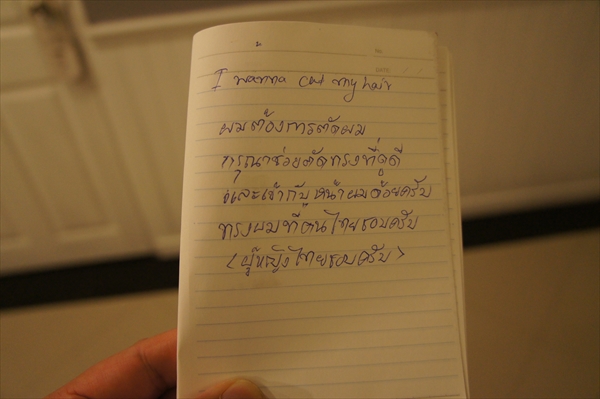 I wanna cut my hair
ผมต้องการตัดผม
กรุณาช่วยตัดทรงที่ดูดี
และเข้ากับหน้าผมด้วยครับ
ทรงผมที่คนไทยชอบครับ
<ผู้หญิงไทยชอบครับ>